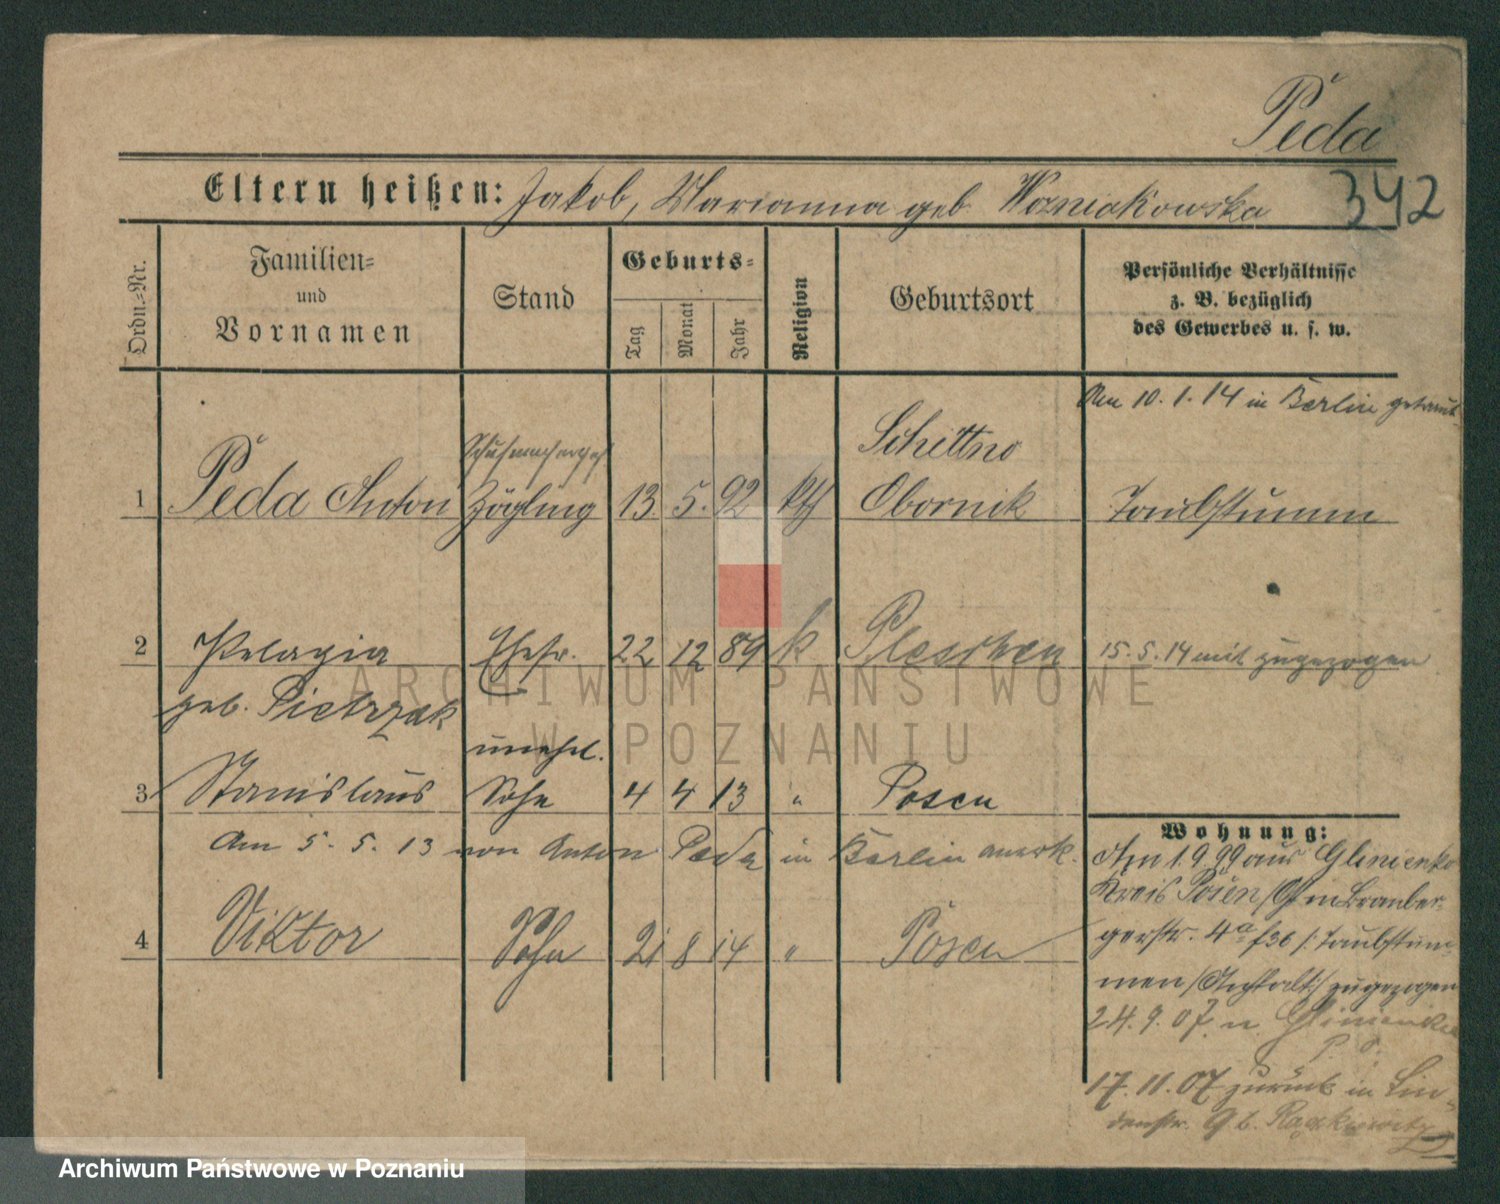 Peda
Eltern heißen: Jakob, Marianna geb. Wozniakowska
342
Ordn.-Nr.
Familien-
und
Vornamen
Stand
Geburts-
Tag
Monat
Jahr
Religion
Geburtsort
Persönliche Verhältnisse
z. B. bezüglich
des Gewerbes u. s. w.
Am 10.1.14 in Berlin getraut
Schuhmacherges
Schittno
1 Peda Anton Zögling 13. 5. 92 kth Obornik Taubstumm
2 Pelagia Ehefr. 22 12 89 k Pleschen 15.5.14 mit zugezogen
geb. Pietrzak
unehel.
3 Stanislaus Sohn 4 4 13 " Posen
Am 5. 5. 13 von Anton Peda in Berlin anerk.
4 Viktor Sohn 21 8 14 " Posen
Wohnung:
Am 1.9.99 aus Glinienko
Kreis Posen /Ost in Bromber-
gerstr. 4a f36 /: Taubstum-
men /Anstalt:/ zugezogen
24.9.07 n. Glinienko
P. O.
17.11.07 zurück in Lin-
denstr. 9 b. Raczkiewitz
ARCHIWUM PAŃSTWOWE
W POZNANIU
Archiwum Państwowe w Poznaniu